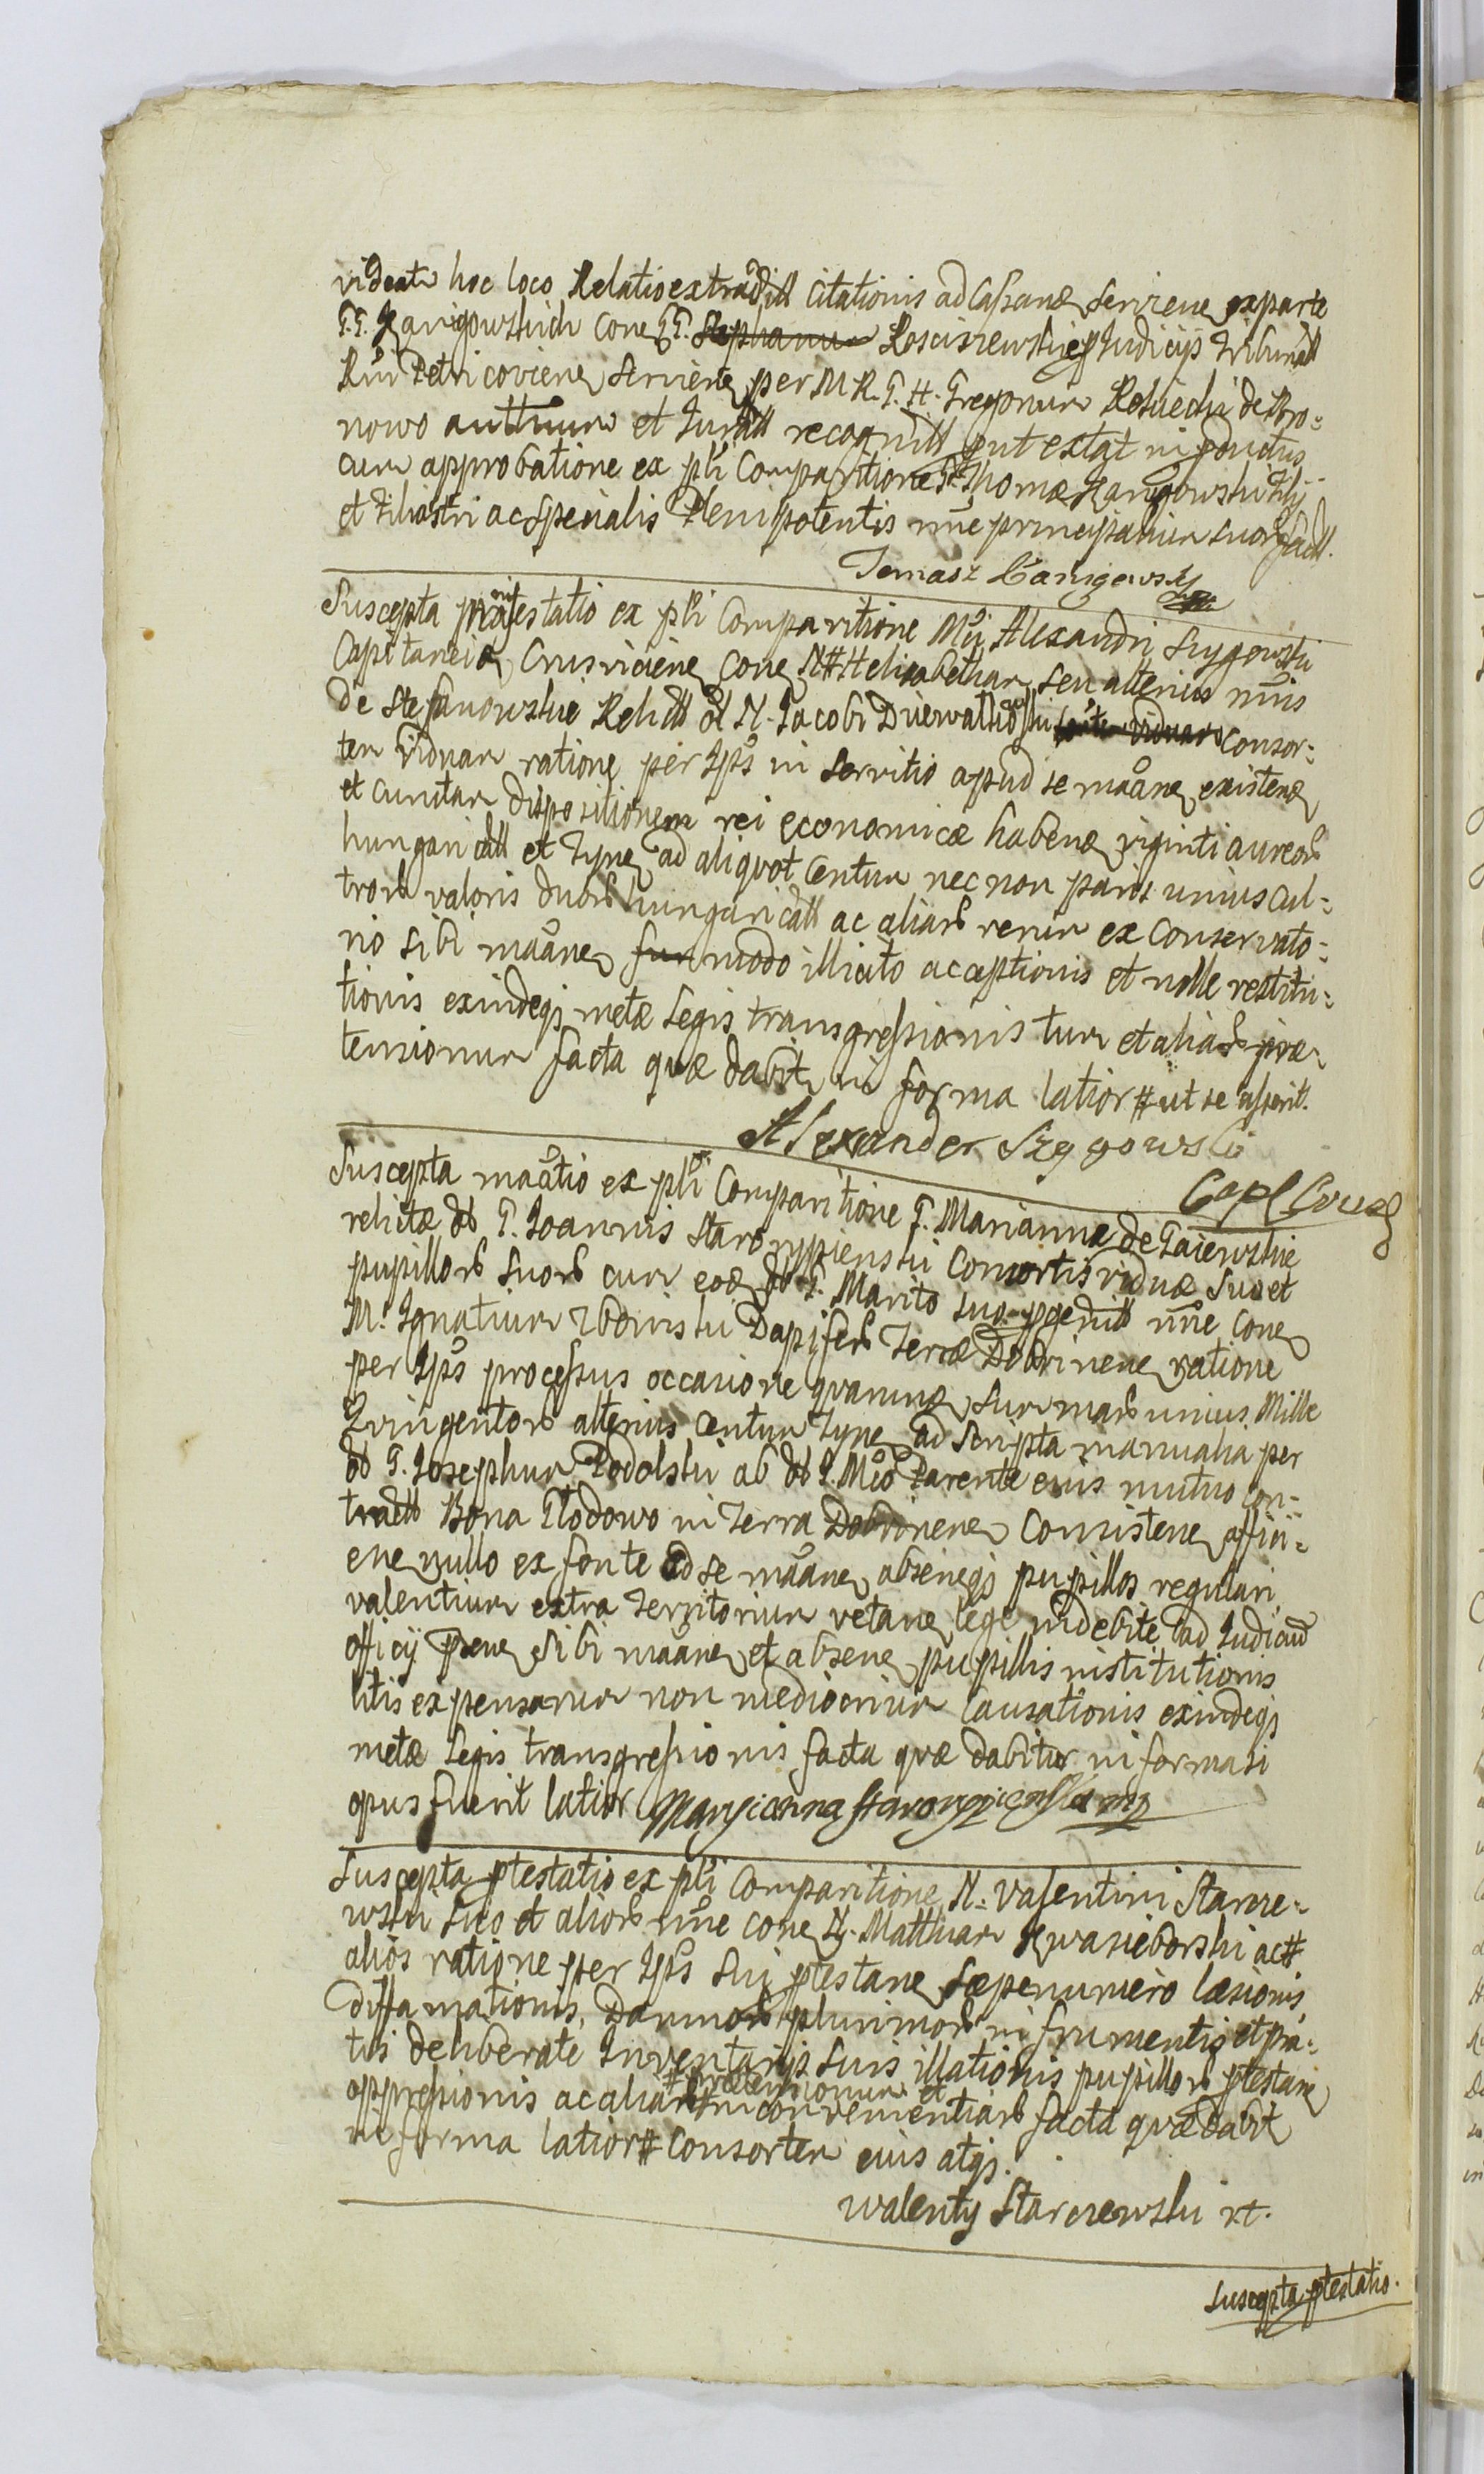 videatr hoc loco Relatio extradit Citationis ad Cassand Serviene ex parte
G.G. Karigowskich Cone GG. Stephanum Rosciszewskie Judicijs Tribunal
Petricoviene Serviene per M.R.G.H. Gregorium de Bro-
nowo authum et Jurat recognit put extat in fonctus
cum approbatione ex pli Comparitione G. Thomæ Karigowski Filij
et Filiastri ac Specialis Plenipotentis nne principalium suor fact.
Tomasz Carigowsky
Suscepta manifestatio ex pli Comparitione Mci Alexandri Szygowski
Capitanei Crusviciene Cone N Helisabetham seu alterius nnis
de Stefanowskie Relict ol N. Jacobi consor-
tem viduam ratione per Ips in Servitio apud se maane existene
et cunctam dispositionem rei economicæ habene viginti aureor
hungarical et Tyne ad aliquot Centum nec non paris unius cul-
tror valoris duor hungarical ac aliar rerum ex Conservato-
rio sibi maane fur modo illicito acceptionis et nolle restitu-
tionis exindeqs metæ Legis transgressionis tum et aliar præ
tensionum facta quæ dabit in forma latior # ut se asserit.
Alexander Szygowski
Cap Crus
Suscepta maatio ex pli Comparitione G. Mariannæ de Gaiewskie
relictæ ol G. Joannis Starorypienski Consortis viduæ Suo et
pupillor Suor cum eod ol G. Marito suo pgenit nne Cone
M. Ignatium Zboinski Dapifer Terræ Dobrinene ratione
per Ips processus occasione quarund Summar unius Mille
Quingentor alterius Centum Tyne ad Scripta manualia per
ol G. Josephum Podolski ab ol G. Mco Parente eius mutuo con-
tract Bona Płodowo in Terra Dobrinene Consistene affici-
ene nullo ex fonte ad se maane abseneqs pupillos regulari
valentium extra Territorium vetane lege indebite ad Judicium
officij psene sibi maane et absene pupillis institutionis
litis expensarum non mediocrium Causationis exindeqs
metæ Legis transgressionis facta quæ dabitur in forma si
opus fuerit latior Maryianna Starorypienska mp
Suscepta ptestatio ex pli Comparitione N. Valentini Starcze-
wski Suo et alior nne Cone N. Matthiam Kwasieborski ac #
alios ratione per Ips Sui ptestane Sæpenumero læsionis
diffamationis, Damnor plurimor in frumentis et pra-
tis deliberate Inventarijs Suis illationis pupillor ptestane
oppressionis ac aliar # prætensionum et inconvenientiar facta quæ dabit
in forma latior # Consortem eius atqs.
Walenty Starczewski
Suscepta ptestatio.